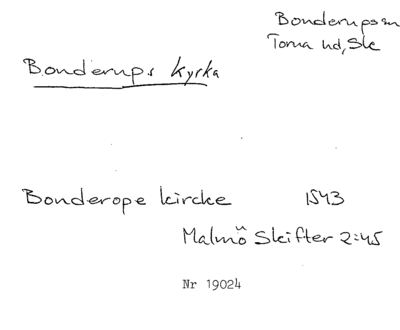 Bonderups sn
Torna hd, Sk
Bonderups kyrka
Bonderope kircke 1543
Malmö Skifter 2:45
Nr 19024